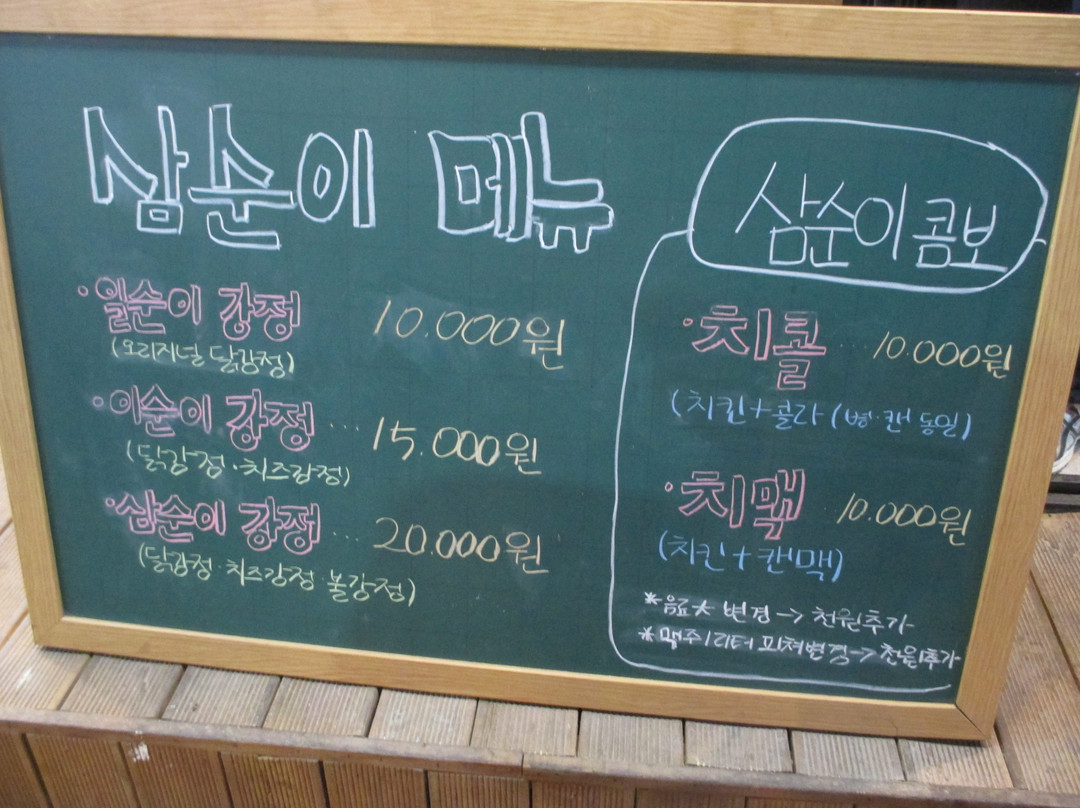 삼순이 메뉴
·일순이 강정 10.000원
(오리지널 닭강정)
·이순이 강정 ... 15.000원
(닭강정·치즈강정)
·삼순이 강정 ... 20.000원
(닭강정·치즈강정·불강정)
삼순이 콤보
·치콜 ... 10.000원
(치킨+콜라 (병·캔 동일)
·치맥 10.000원
(치킨+캔맥)
*음료 大 변경→천원추가
*맥주1리터 피쳐변경→천원추가